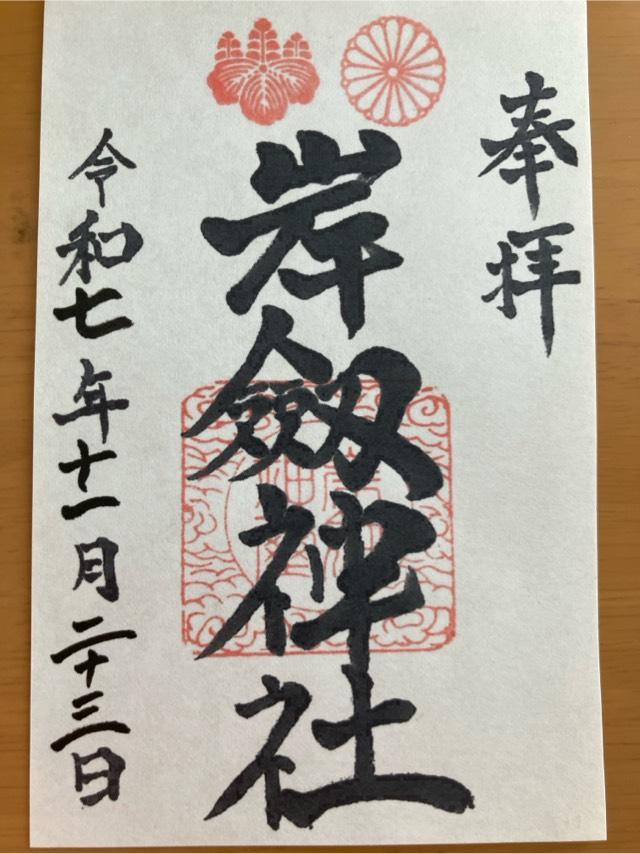 奉拝
岸劔神社
令和七年十一月二十三日